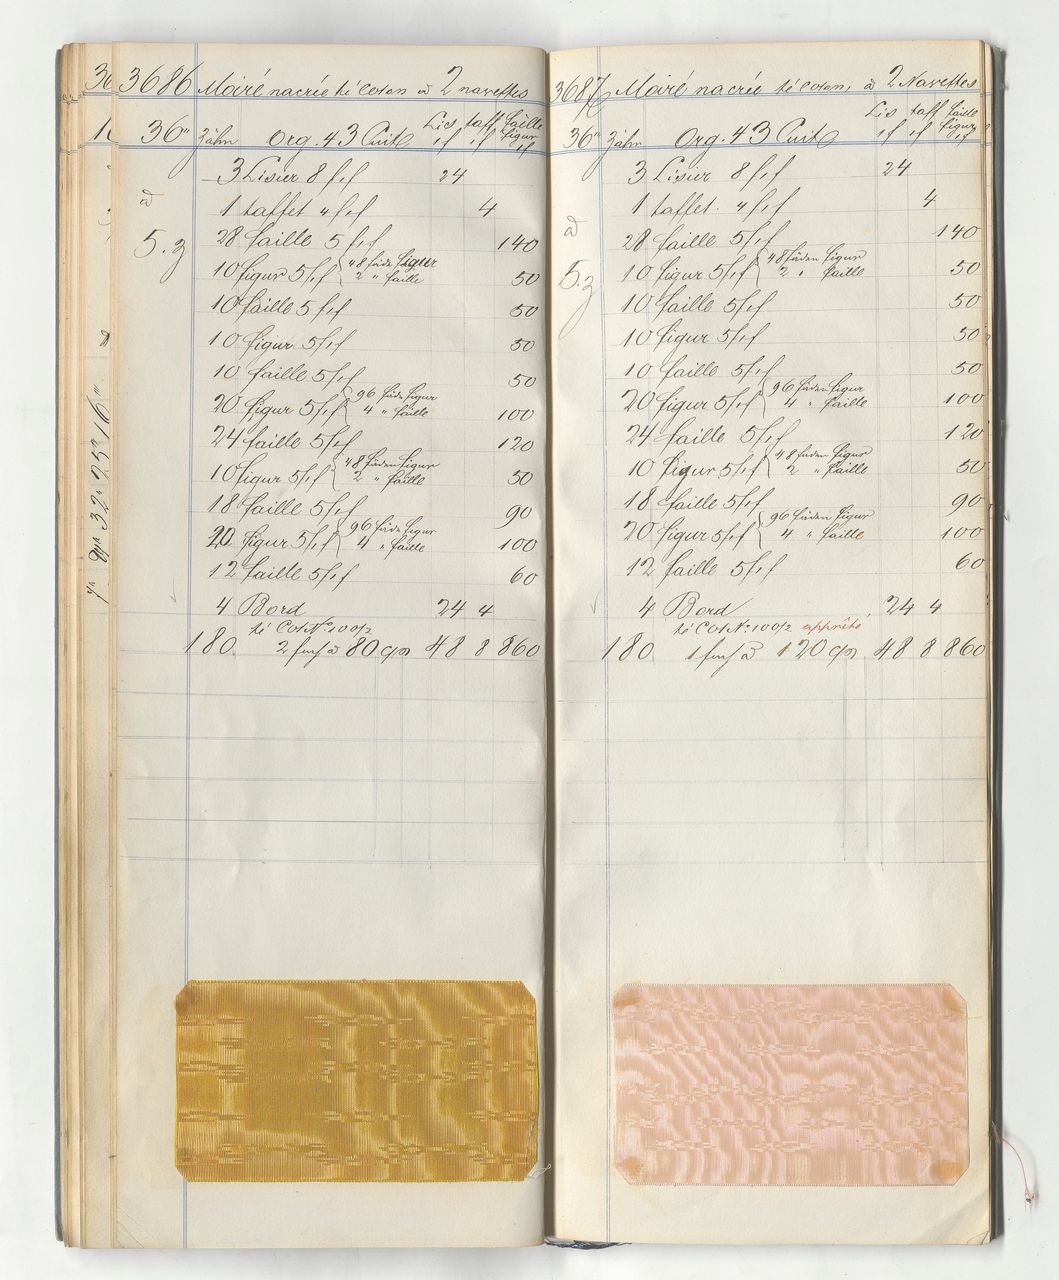 3686 Moiré nacrée té coton à 2 navettes
Lis taff faille
figur
36''' zähn Org. 43 Cuit f.f f.f f.f
3 Lisier 8 f.f 24
à 1 taffet 4 f.f 4
5.z 28 faille 5 f.f 140
10 figur 5 f.f { 48 fäde figur 50
2 " faille
10 faille 5 f.f 50
10 figur 5 f.f 50
10 faille 5 f.f 50
20 figur 5 f.f { 96 fäde figur 100
4 " faille
24 faille 5 f.f 120
10 figur 5 f.f { 48 fäden figur 50
2 " faille
18 faille 5 f.f 90
20 figur 5 f.f { 96 fäde figur 100
4 " faille
12 faille 5 f.f 60
4 Bord 24 4
té Cot N° 100/2
180 2 à 80 48 8 860
3687 Moiré nacrée té coton, à 2 Navettes
Lis taff faille
figur
36''' zähn Org. 43 Cuit f.f f.f f.f
3 Lisier 8 f.f 24
1 taffet. 4 f.f 4
à 28 faille 5 f.f 140
5.z 10 figur 5 f.f { 48 fäden figur 50
2 " faille
10 faille 5 f.f 50
10 figur 5 f.f 50
10 faille 5 f.f 50
20 figur 5 f.f { 96 fäden figur 100
4 " faille
24 faille 5 f.f 120
10 figur 5 f.f { 48 fäden figur 50
2 " faille
18 faille 5 f.f 90
20 figur 5 f.f { 96 fäden figur 100
4 " faille
12 faille 5 f.f 60
4 Bord 24 4
té Cot N° 100/2 apprêté
180 1 à 120 48 8 860